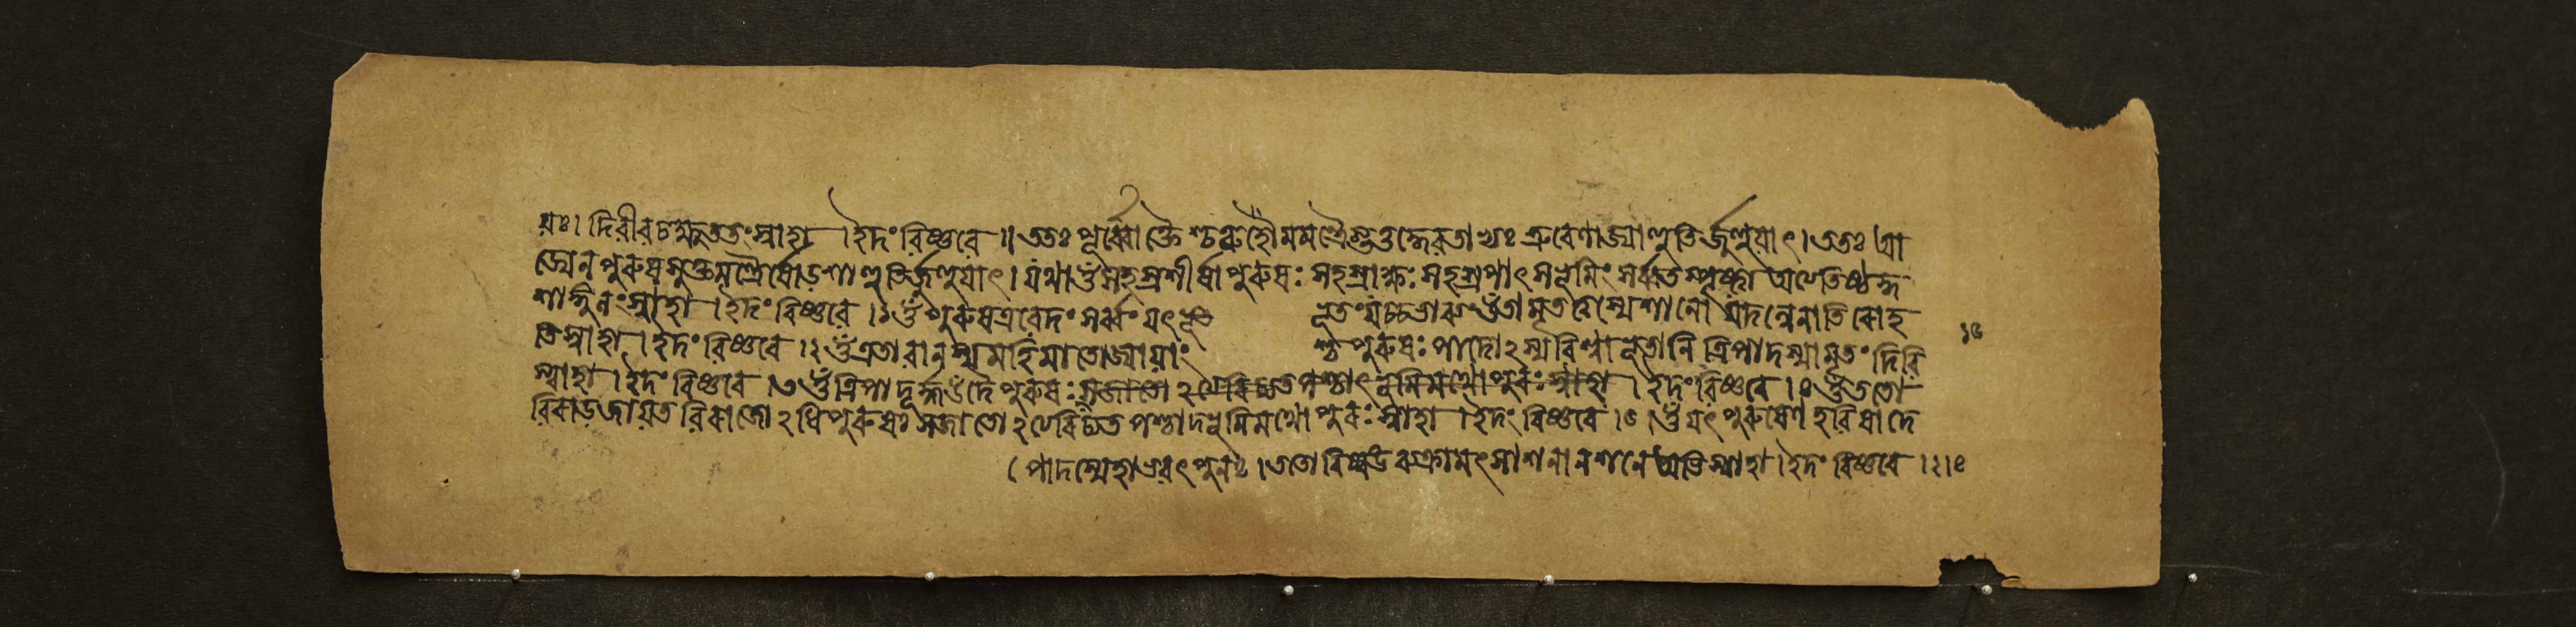 য়ঃ। দিবীব চক্ষুততং স্বাহা । ইদং বিষ্ণবে ॥ ততঃ পূর্ব্বো আজ্যাহুতির্জুহুয়াৎ। ততঃ আ
জ্যেন পুরুষসূক্তমন্ত্রৈর্ষোড়শাহুতির্জুহুয়াৎ। যথা ওঁ সহস্রশীর্ষা পুরুষঃ সহস্রাক্ষঃ সহস্রপাৎ সভূমিং সর্ব্বতস্পৃষ্ট্বা অত্যতিষ্ঠদ্দ
শাঙ্গুলং স্বাহা । ইদং বিষ্ণবে ।১ ওঁ পুরুষএবেদং সর্ব্বং যৎভূত ভূতং যচ্চভাব্য ওঁতামৃতত্বস্যেশানো যদন্নেনাতিরোহ
তি স্বাহা । ইদং বিষ্ণবে ।২ ওঁ এতাবানস্যমহিমাতোজ্যায়াং শ্চ পুরুষঃ পাদোঽস্যবিশ্বাভূতানি ত্রিপাদস্যামৃতং দিবি
স্বাহা । ইদং বিষ্ণবে ।৩ ওঁ ত্রিপাদূর্দ্ধউদৈপুরুষঃ সজাতোঽত্যরিচ্যত পশ্চাৎভূমিমথোপুরঃ স্বাহা । ইদং বিষ্ণবে ।৪ ওঁ ততো
বিরাডজায়ত বিরাজোঽধিপুরুষঃ সজাতোঽত্যরিচ্যত পশ্চাদ্ভূমিমথোপুরঃ স্বাহা । ইদং বিষ্ণবে ।৫ । ওঁ যৎ পুরুষেণ হবিষা দে
( পাদস্যেহাভবৎ পুনঃ । ততো বিষ্বঙ ব্যক্রামৎ সাশনানশনে অভি স্বাহা । ইদং বিষ্ণবে ।২।৪
১৫